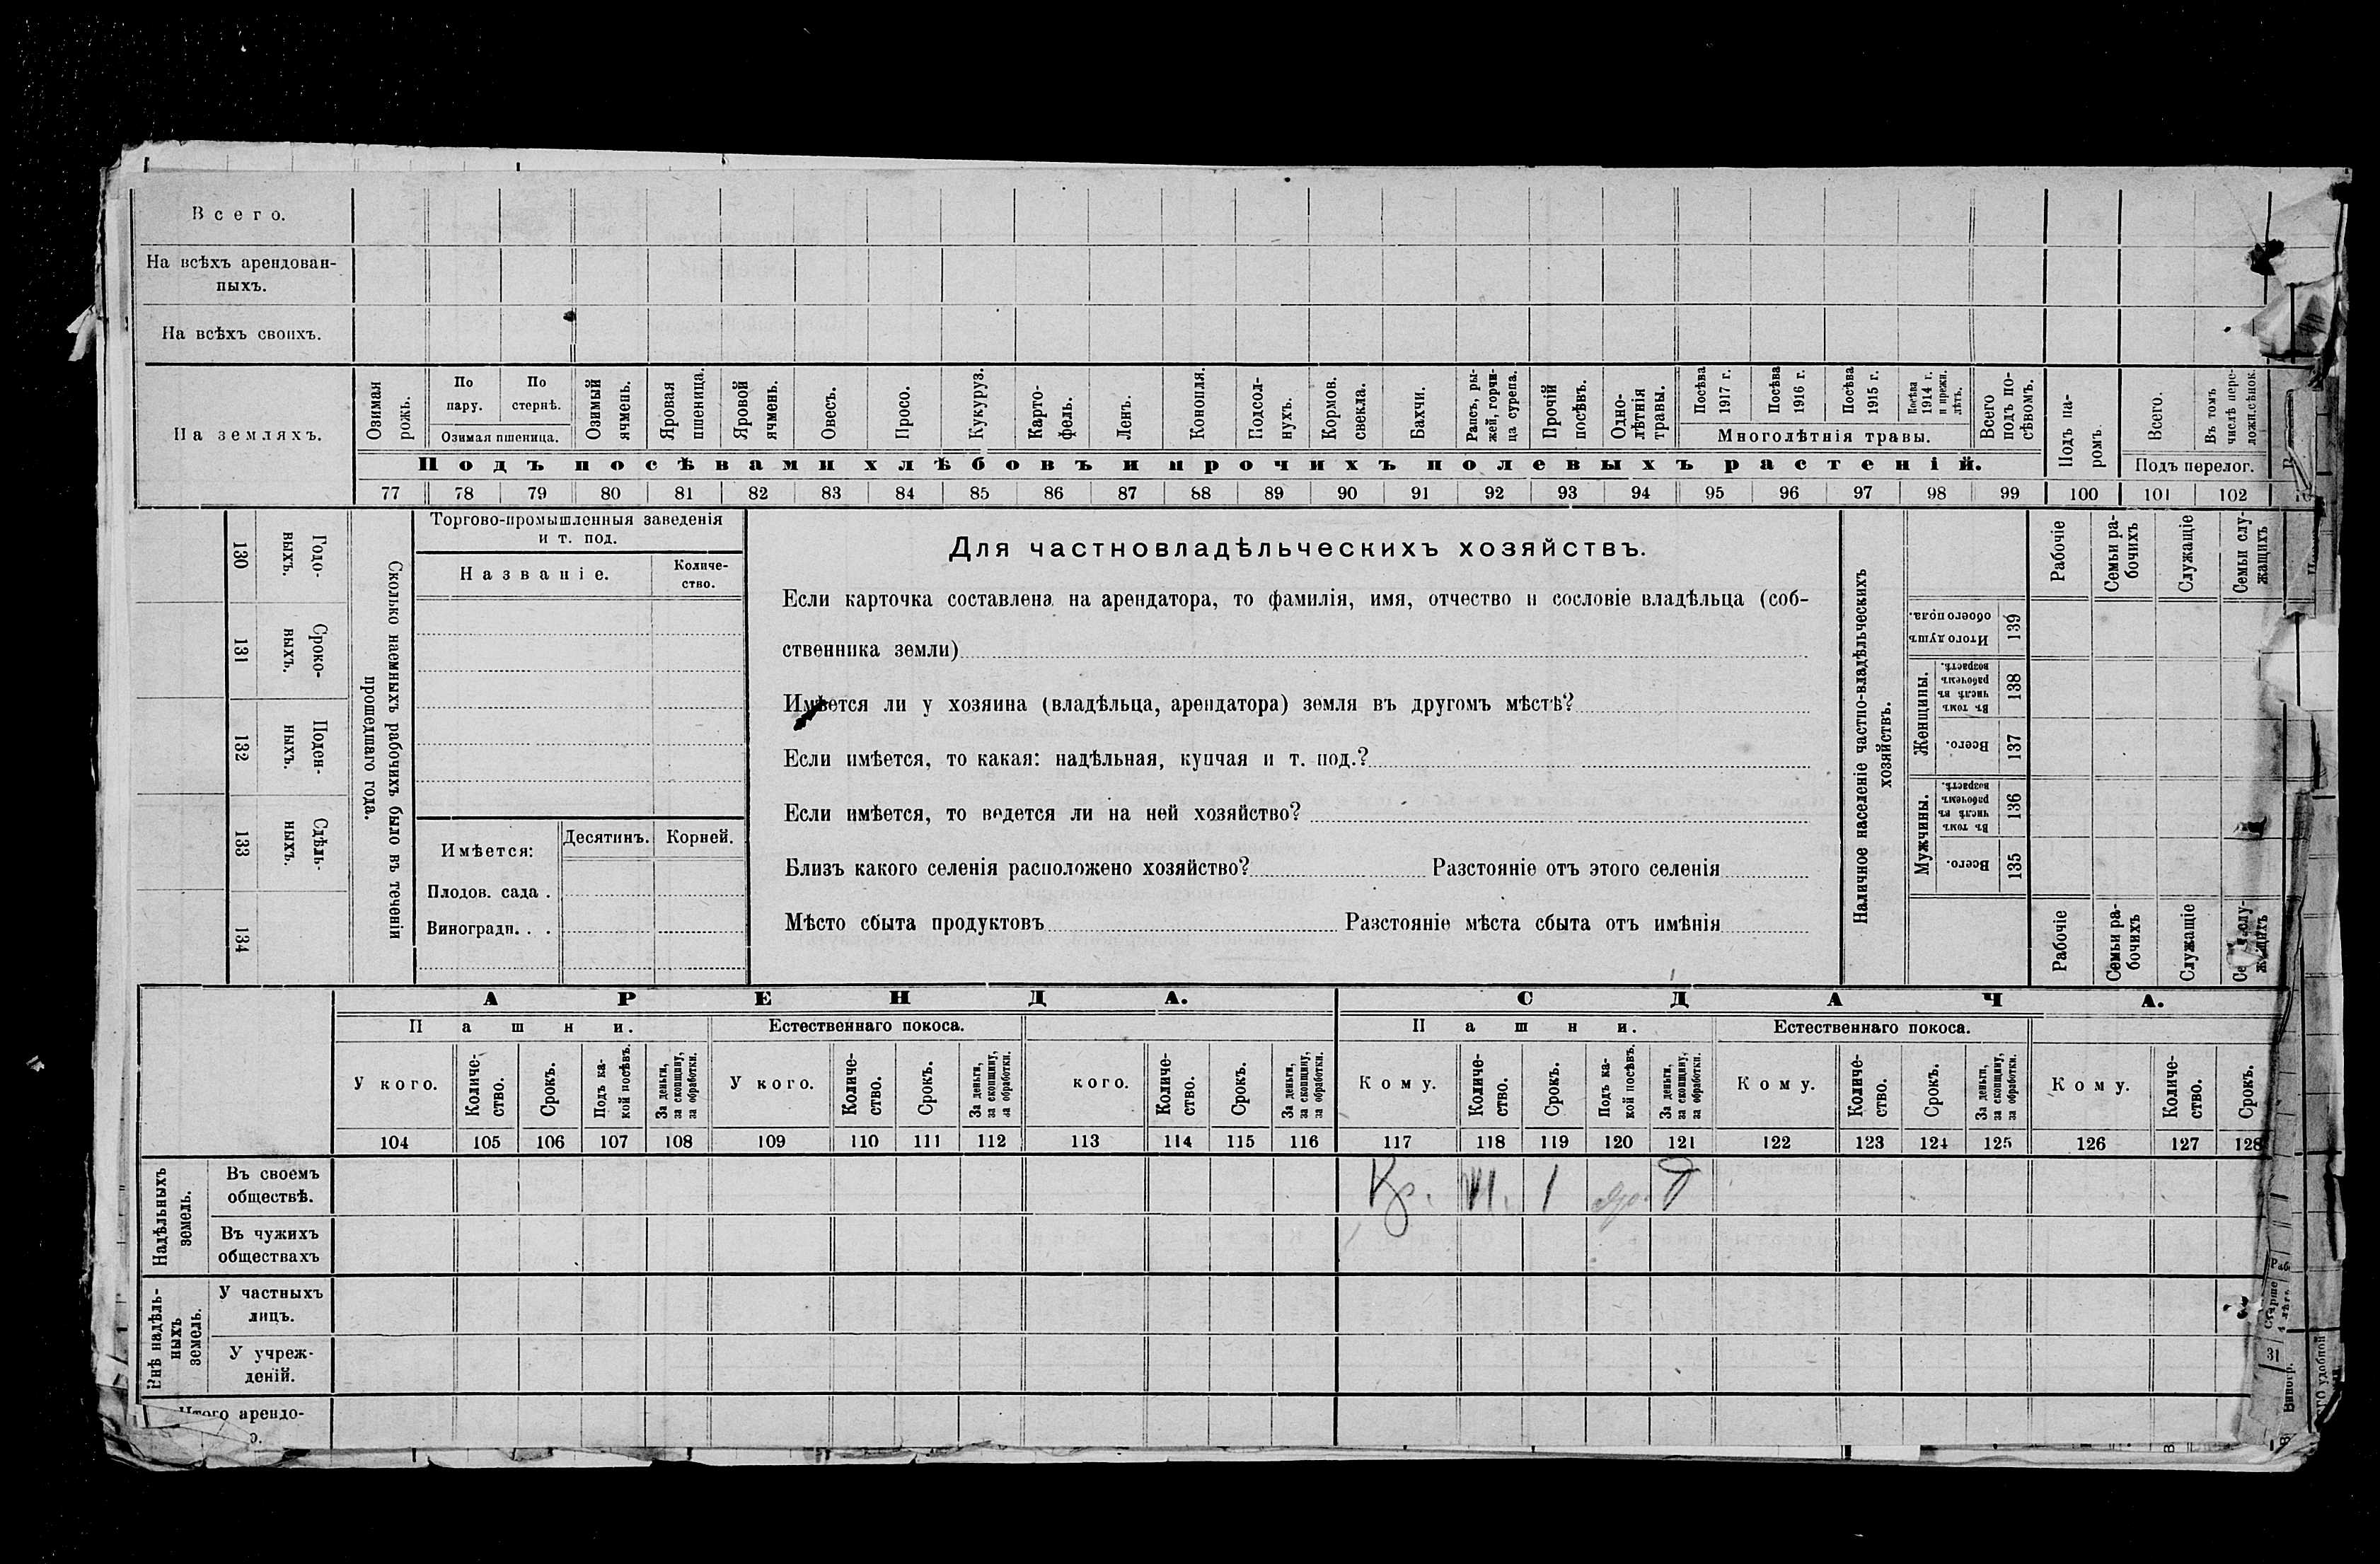 Всего.
На всѣхъ арендован-
ныхъ.
На всѣхъ своихъ.
На земляхъ.
Озимая рожь.
По пару.
По стернѣ.
Озимая пшеница.
Озимый ячмень.
Яровая пшеница.
Яровой ячмень.
Овесъ.
Просо.
Кукуруз.
Карто-
фель.
Ленъ.
Конопля.
Подсол-
нухъ.
Кормов. свекла.
Бахчи.
Рапсъ, ры-
жей, горчи-
ца сурепа.
Прочій посѣвъ.
Одно-
лѣтнія травы.
Посѣва 1917 г.
Посѣва 1916 г.
Посѣва 1915 г.
Посѣва 1914 г. и прежн. лѣтъ.
Многолѣтнія травы.
Всего подъ по-
сѣвомъ.
Подъ посѣвами хлѣбовъ и прочихъ полевыхъ растеній.
Подъ па-
ромъ.
Всего.
Въ томъ числѣ пере-
ложн.сѣнок.
Подъ перелог.
77 78 79 80 81 82 83 84 85 86 87 88 89 90 91 92 93 94 95 96 97 98 99 100 101 102
Сколько наемныхъ рабочихъ было въ теченіи
прошедшаго года.
Годо-
выхъ.
130
Сроко-
выхъ.
131
Поден-
ныхъ.
132
Сдѣль-
ныхъ.
133
134
Торгово-промышленныя заведенія
и т. под.
Названіе.
Количе-
ство.
Имѣется:
Десятинъ.
Корней.
Плодов. сада .
Виноградн. . .
Для частновладѣльческихъ хозяйствъ.
Если карточка составлена на арендатора, то фамилія, имя, отчество и сословіе владѣльца (соб-
ственника земли)
Имѣется ли у хозяина (владѣльца, арендатора) земля въ другомъ мѣстѣ?
Если имѣется, то какая: надѣльная, купчая и т. под.?
Если имѣется, то ведется ли на ней хозяйство?
Близъ какого селенія расположено хозяйство? Разстояніе отъ этого селенія
Мѣсто сбыта продуктовъ Разстояніе мѣста сбыта отъ имѣнія
Наличное населеніе частно-владѣльческихъ
хозяйствъ.
Рабочіе
Семьи ра-
бочихъ
Служащіе
Семьи слу-
жащихъ
Итого душъ
обоего пола.
139
Женщины.
Въ томъ числѣ въ рабочемъ возрастѣ.
138
Всего.
137
Мужчины.
Въ томъ числѣ въ рабочемъ возрастѣ.
136
Всего.
135
Рабочіе
Семьи ра-
бочихъ
Служащіе
АРЕНДА.
СДАЧА.
Пашни.
Естественнаго покоса.
Пашни.
Естественнаго покоса.
У кого.
Количе-
ство.
Срокъ.
Подъ ка-
кой посѣвъ.
За деньги,
за скопщину,
за обработки.
У кого.
Количе-
ство.
Срокъ.
За деньги,
за скопщину,
за обработки.
кого.
Количе-
ство.
Срокъ.
За деньги,
за скопщину,
за обработки.
Кому.
Количе-
ство.
Срокъ.
Подъ ка-
кой посѣвъ.
За деньги,
за скопщину,
за обработки.
Кому.
Количе-
ство.
Срокъ.
За деньги,
за скопщину,
за обработки.
Кому.
Количе-
ство.
Срокъ.
104 105 106 107 108 109 110 111 112 113 114 115 116 117 118 119 120 121 122 123 124 125 126 127 128
Надѣльныхъ
земель.
Въ своемъ
обществѣ.
Кр. VI. 1
Въ чужихъ
обществахъ
Внѣ надѣль-
ныхъ
земель.
У частныхъ
лицъ.
У учреж-
деній.
Итого арендо-
31
Виногр.
удобной